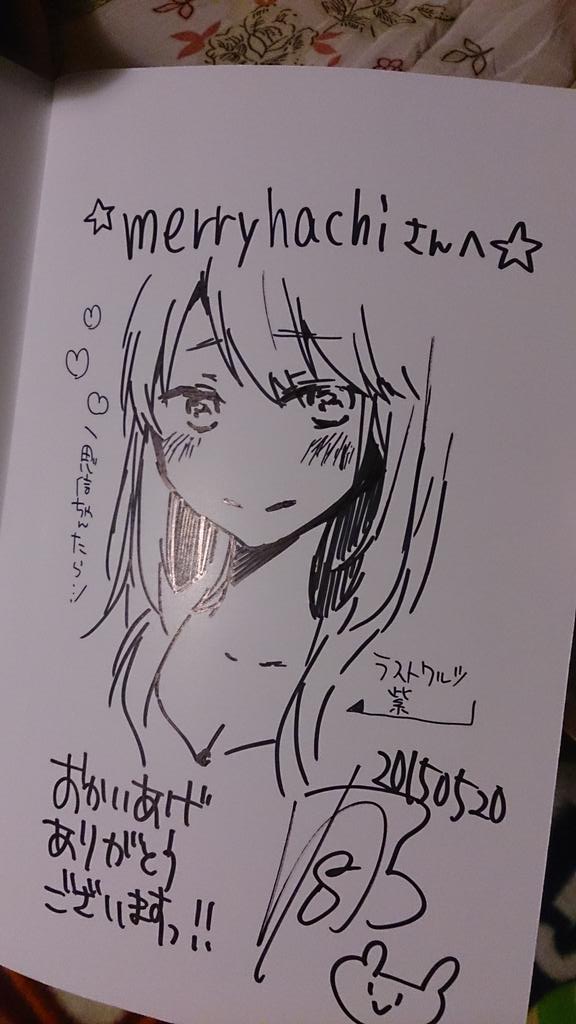 ☆merryhachiさんへ☆
♡♡♡
思信ちゃんたら…
ラストワルツ
紫
20150520
おかいあげ
ありがとう
ございますっ!!